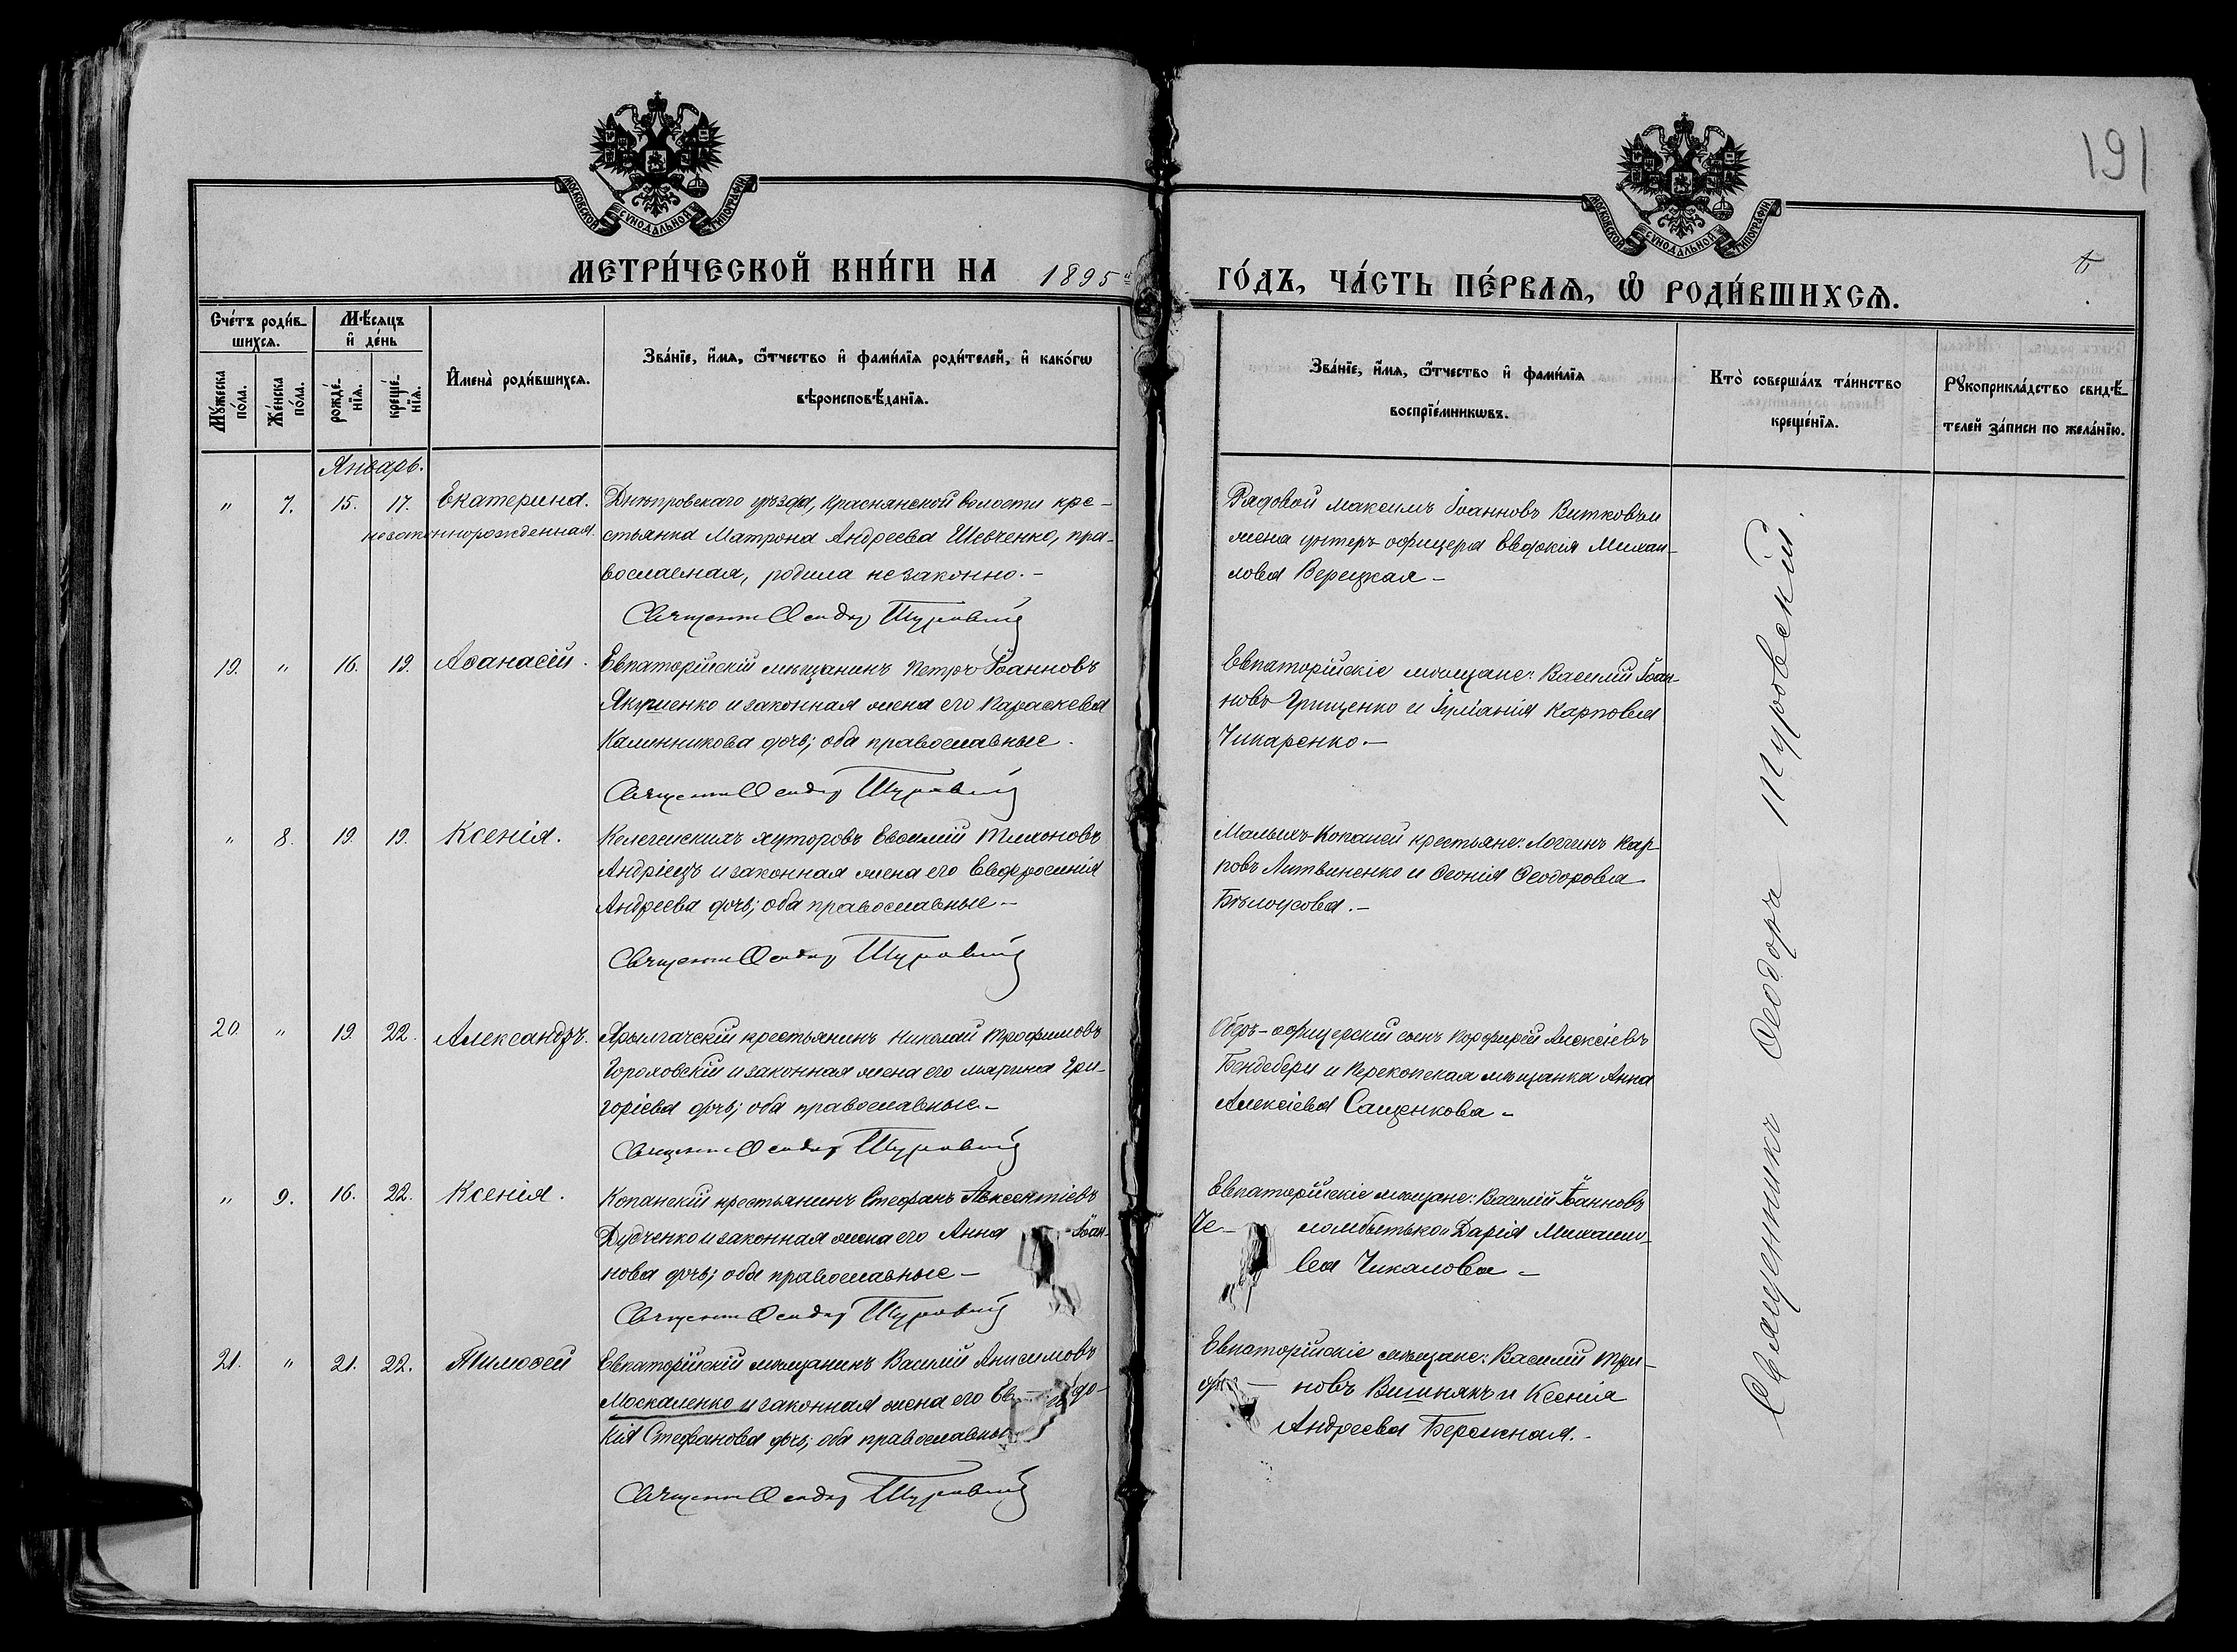 191
МОСКОВСКОЙ СѴНОДАЛЬНОЙ ТИПОГРАФІИ
МОСКОВСКОЙ СѴНОДАЛЬНОЙ ТИПОГРАФІИ
МЕТРИ́ЧЕСКОЙ КНИ́ГИ НА 1895
ГО́ДЪ, ЧА́СТЬ ПЕ́РВАѦ, Ѽ РОДИ́ВШИХСѦ.
Сче́тъ роди́в-
шихсѧ.
Мѣ́сѧцъ
и҆ де́нь
Мꙋ́жеска
по́ла.
Же́нска
по́ла.
рожде́-
нїѧ.
креще́-
нїѧ.
И҆мена̀ роди́вшихсѧ.
Зва́нїе, и҆́мѧ, ѻ҆́тчество и҆ фами́лїѧ роди́телей, и҆ како́гѡ
вѣроисповѣ́данїѧ.
Зва́нїе, и҆́мѧ, ѻ҆́тчество и҆ фами́лїѧ
воспрїе́мникѡвъ.
Кто̀ соверша́лъ та́инство
креще́нїѧ.
Рꙋкоприкла́дство свидѣ́-
телей за́писи по жела́нїю.
Январь.
" 7. 15. 17. Екатерина.
незаконнорожденная.
Днѣпровскаго уѣзда, Краснянской волости кре-
стьянка Матрона Андреева Шевченко, пра-
вославная, родила незаконно. -
Священ Ѳеодор Туровский
Рядовой Максимъ Іоанновъ Витковъ и
жена унтеръ-офицера Евдокія Михаи-
лова Верецкая -
19. " 16. 19. Аѳанасій.
Евпаторійскій мѣщанинъ Петръ Іоанновъ
Якушенко и законная жена его Параскева
Калинникова дочь; оба православные.
Священ Ѳеодор Туровский
Евпаторійскіе мѣщане: Василий Іоан-
новъ Грищенко и Іуліанія Карпова
Чикаренко. -
" 8. 19. 19. Ксенія.
Келегейскихъ хуторовъ Евѳимій Тихоновъ
Андріецъ и законная жена его Евфросинія
Андреева дочь; оба православные -
Священ Ѳеодор Туровский
Малыхъ-Копаней крестьяне: Логгинъ Кар-
повъ Литвиненко и Ѳеонія Ѳеодорова
Бѣлоусова. -
20. " 19. 22. Александръ.
Ярылгачскій крестьянинъ Николай Трофимовъ
Гороховскій и законная жена его Марина Гри-
горіева дочь; оба православные. -
Священ Ѳеодор Туровский
Оберъ-офицерскій сынъ Порфирій Алексіевъ
Бендебери и Перекопская мѣщанка Анна
Алексіева Сащенкова -
" 9. 16. 22. Ксенія.
Копанскій крестьянинъ Стефанъ Авксентіевъ
Дудченко и законная жена его Анна Іоан-
нова дочь; оба православные -
Священ Ѳеодор Туровский
Евпаторійскіе мѣщане: Василій Іоанновъ
Че- ломбытько и Дарія Михаило-
ва Чикалова -
21. " 21. 22. Тимоѳей
Евпаторійскій мѣщанинъ Василій Анисимовъ
Москаленко и законная жена его Ев- до-
кія Стефанова дочь; оба православны
Священ Ѳеодор Туровский
Евпаторійскіе мѣщане: Василий Три-
фо- новъ Вишнякъ и Ксенія
Андреева Бережная. -
Священникъ Ѳеодоръ Туровский